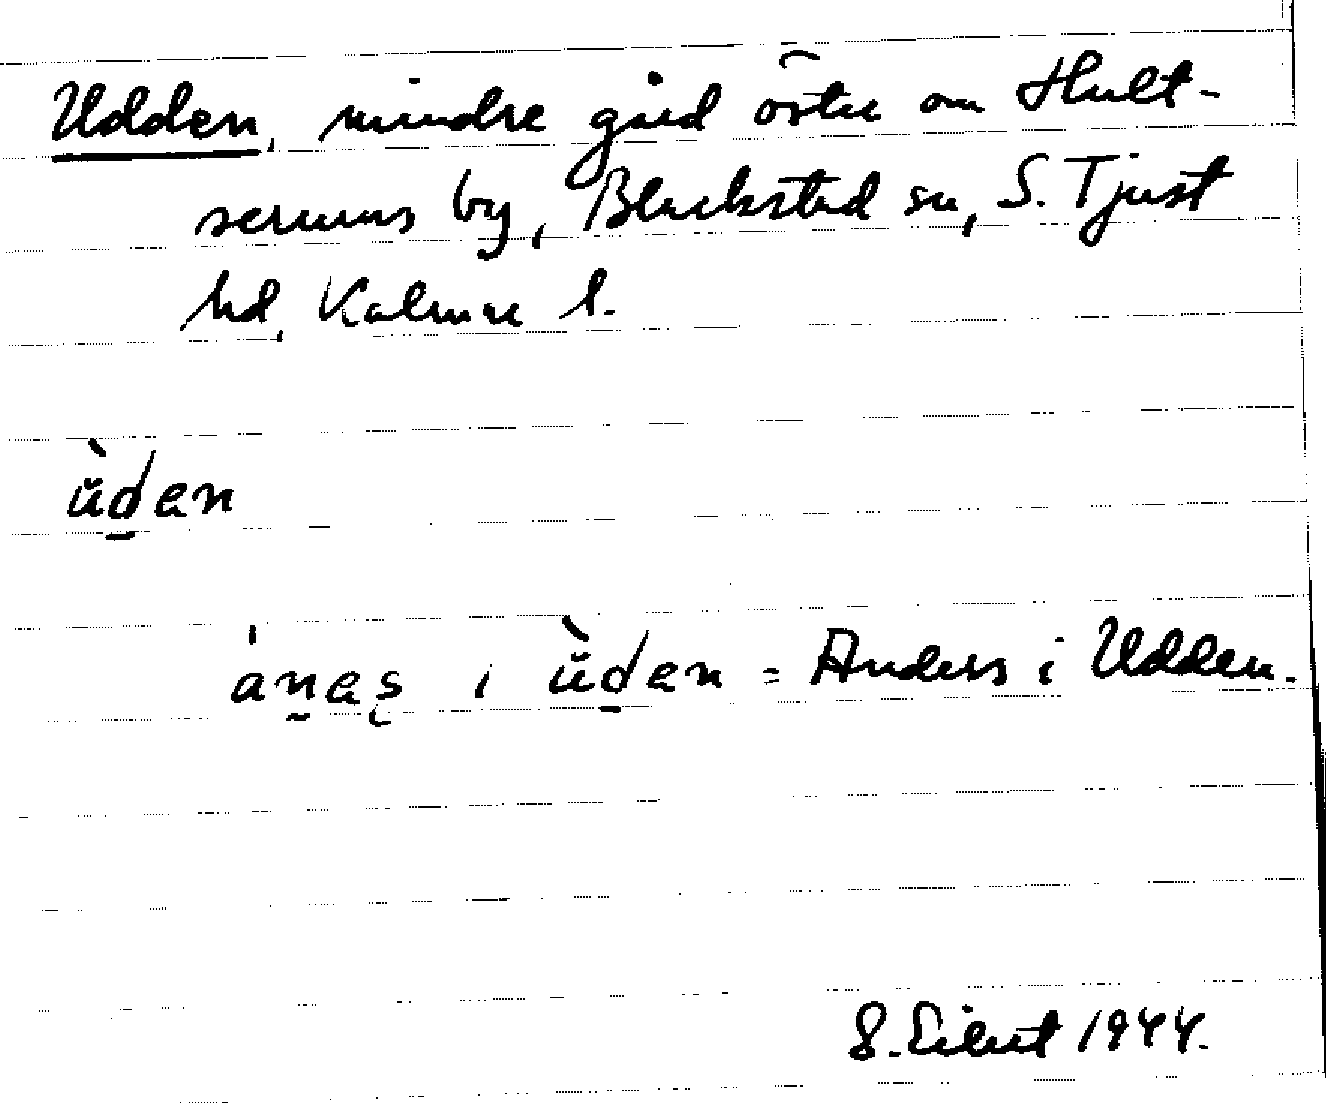 Udden, mindre gård öster om Hult-
serums by, Blackstad sn, S. Tjust
hd, Kalmar l.
ùden
ánas i ùden = Anders i Udden.
1944.